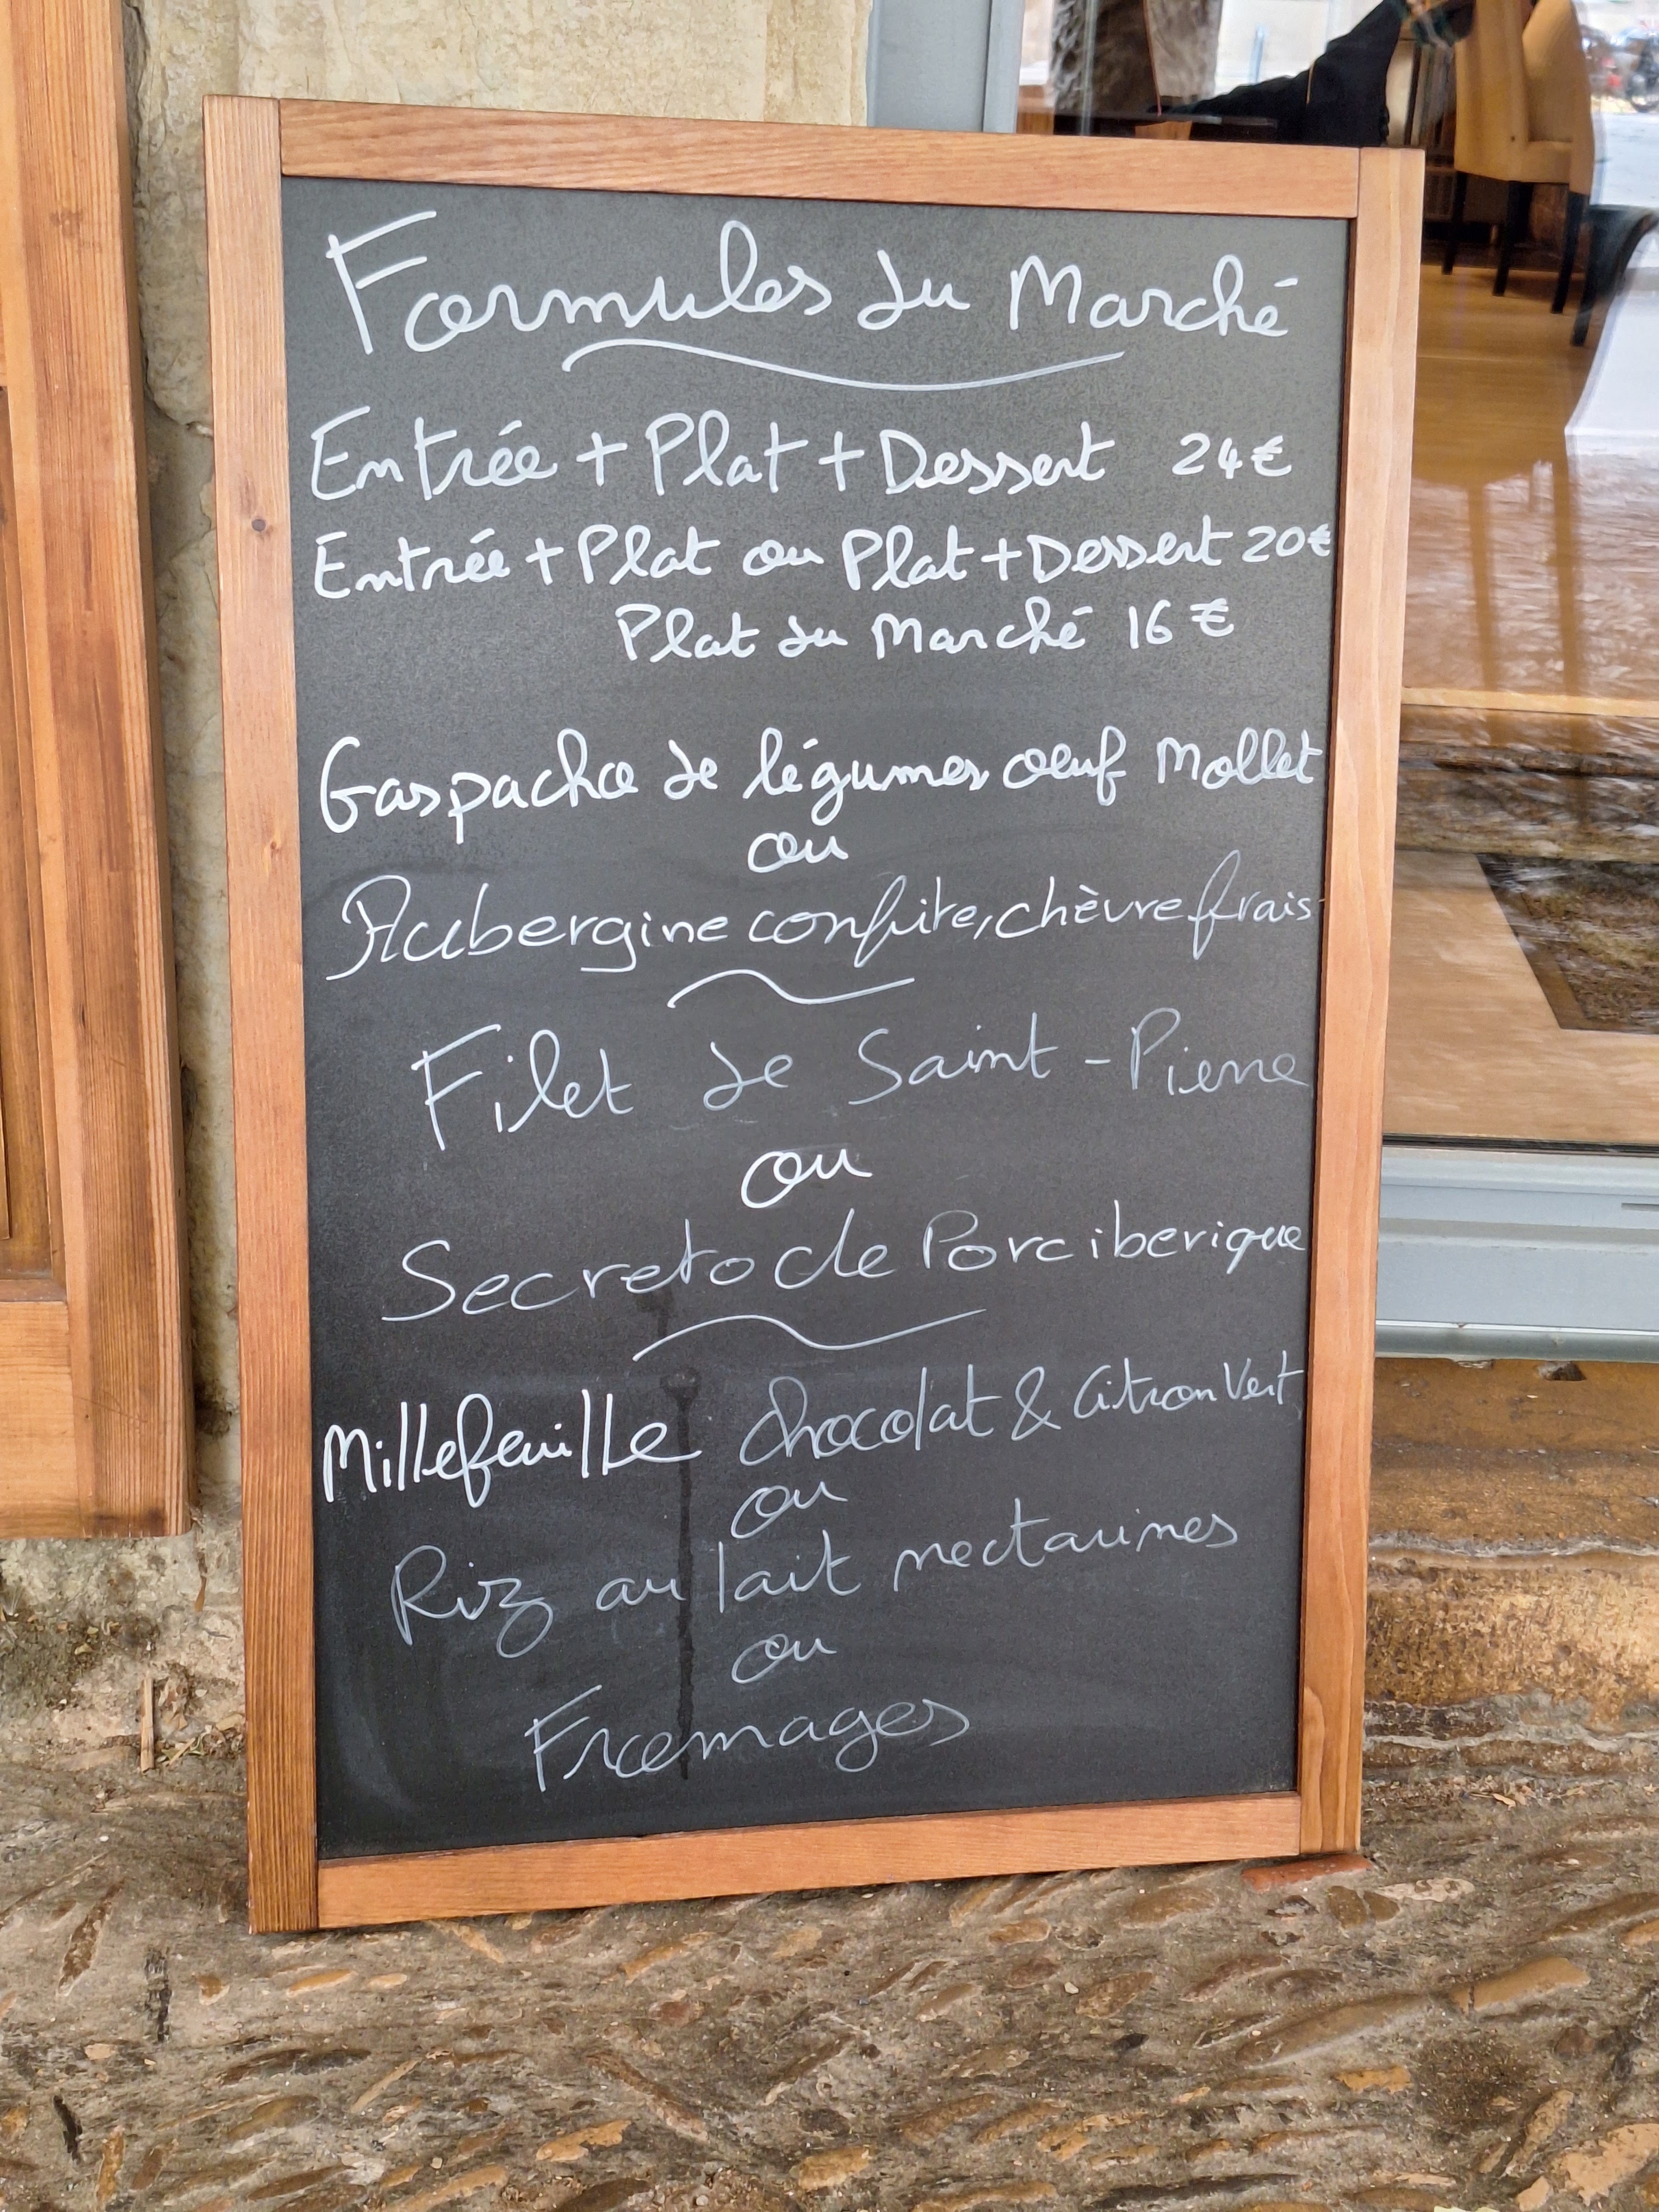 Formules du Marché
Entrée + Plat + Dessert 24€
Entrée + Plat ou Plat + Dessert 20€
Plat du Marché 16€
Gaspacho de légumes œuf Mollet
ou
Aubergine confite, chèvre frais
Filet de Saint-Pierre
ou
Secreto de Porc iberique
Millefeuille chocolat & Citron Vert
ou
Riz au lait nectarines
ou
Fromages